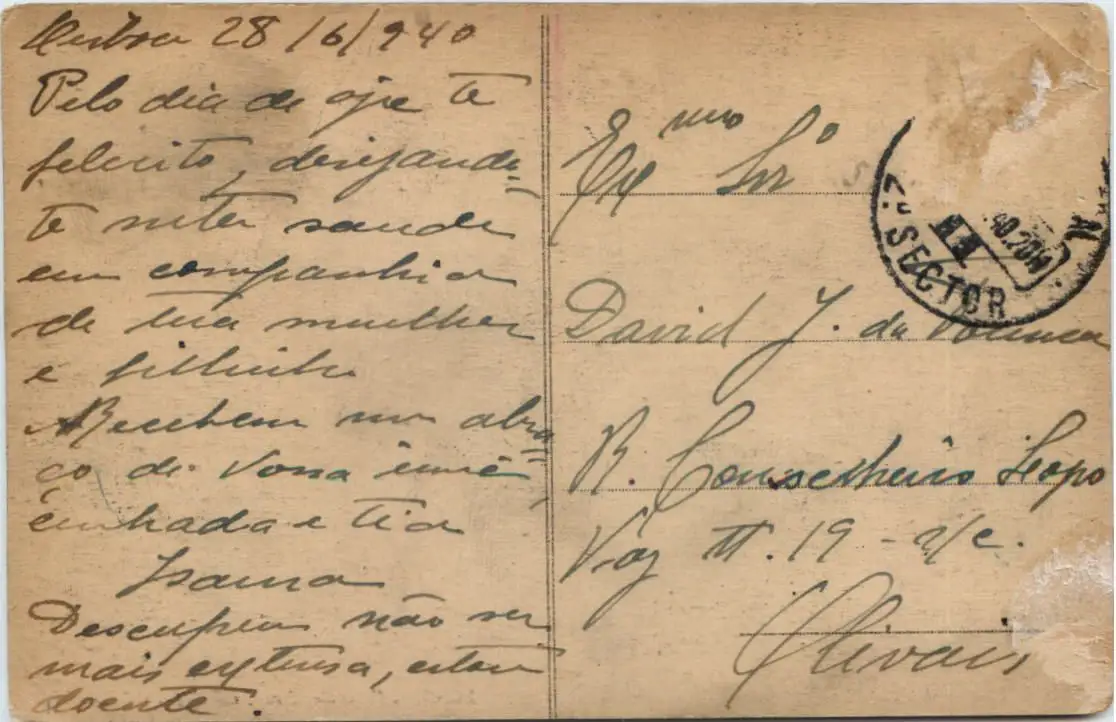 Lisboa 28/6/940
Pelo dia de oje te
felecito, desejando-
te muta saude
em companhia
de tua mulher
e filhinho
Recebem um abra-
ço de Vossa irmã
cunhada e tia
Isaura
Desculpem não ser
mais extensa, estou
doente.
Exmo Sr
David J. da
R. Conselheiro Lopo
Vaz 19 - r/c.
Olivais
2º SECTOR